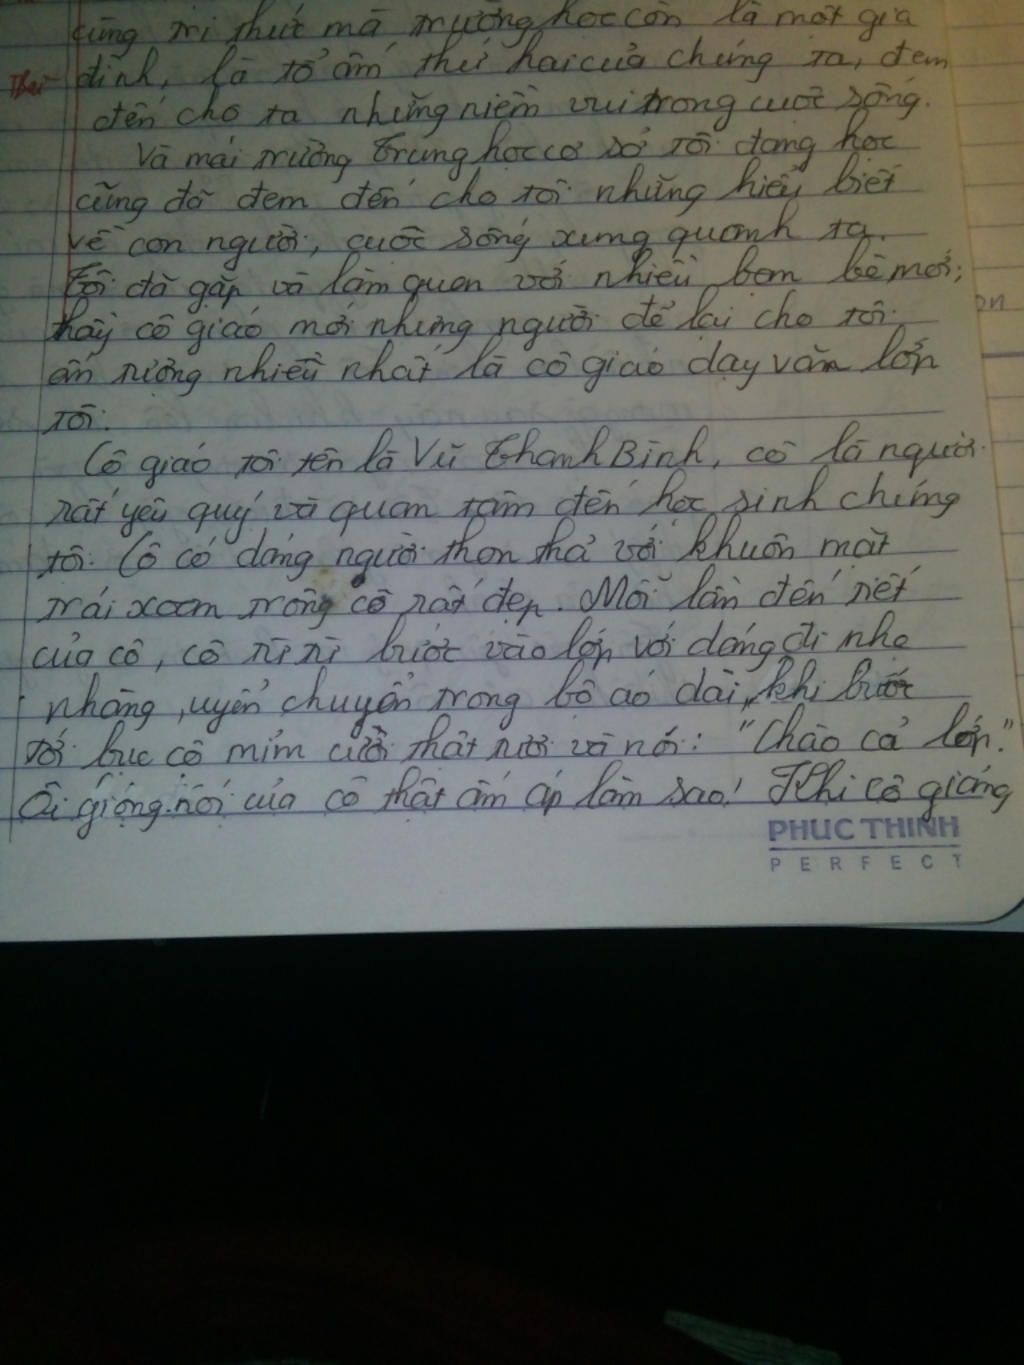 cũng tri thức mà trường học còn là một gia
đình, là tổ ấm thứ hai của chúng ta, đem
đến cho ta những niềm vui trong cuộc sống.
Và mái trường trung học cơ sở tôi đang học
cũng đã đem đến cho tôi những hiểu biết
về con người, cuộc sống xung quanh ta.
Tôi đã gặp và làm quen với nhiều bạn bè mới,
thầy cô giáo mới nhưng người để lại cho tôi
ấn tượng nhiều nhất là cô giáo dạy văn lớp
tôi.
Cô giáo tôi tên là Vũ Thanh Bình, cô là người
rất yêu quý và quan tâm đến học sinh chúng
tôi. Cô có dáng người thon thả với khuôn mặt
trái xoan trông cô rất đẹp. Mỗi lần đến tiết
của cô, cô từ từ bước vào lớp với dáng đi nhẹ
nhàng, uyển chuyển trong bộ áo dài, khi bước
tới bục cô mỉm cười thật tươi và nói: "Chào cả lớp."
Ôi giọng nói của cô thật ấm áp làm sao! Khi cô giảng
PHUC THINH
PERFECT